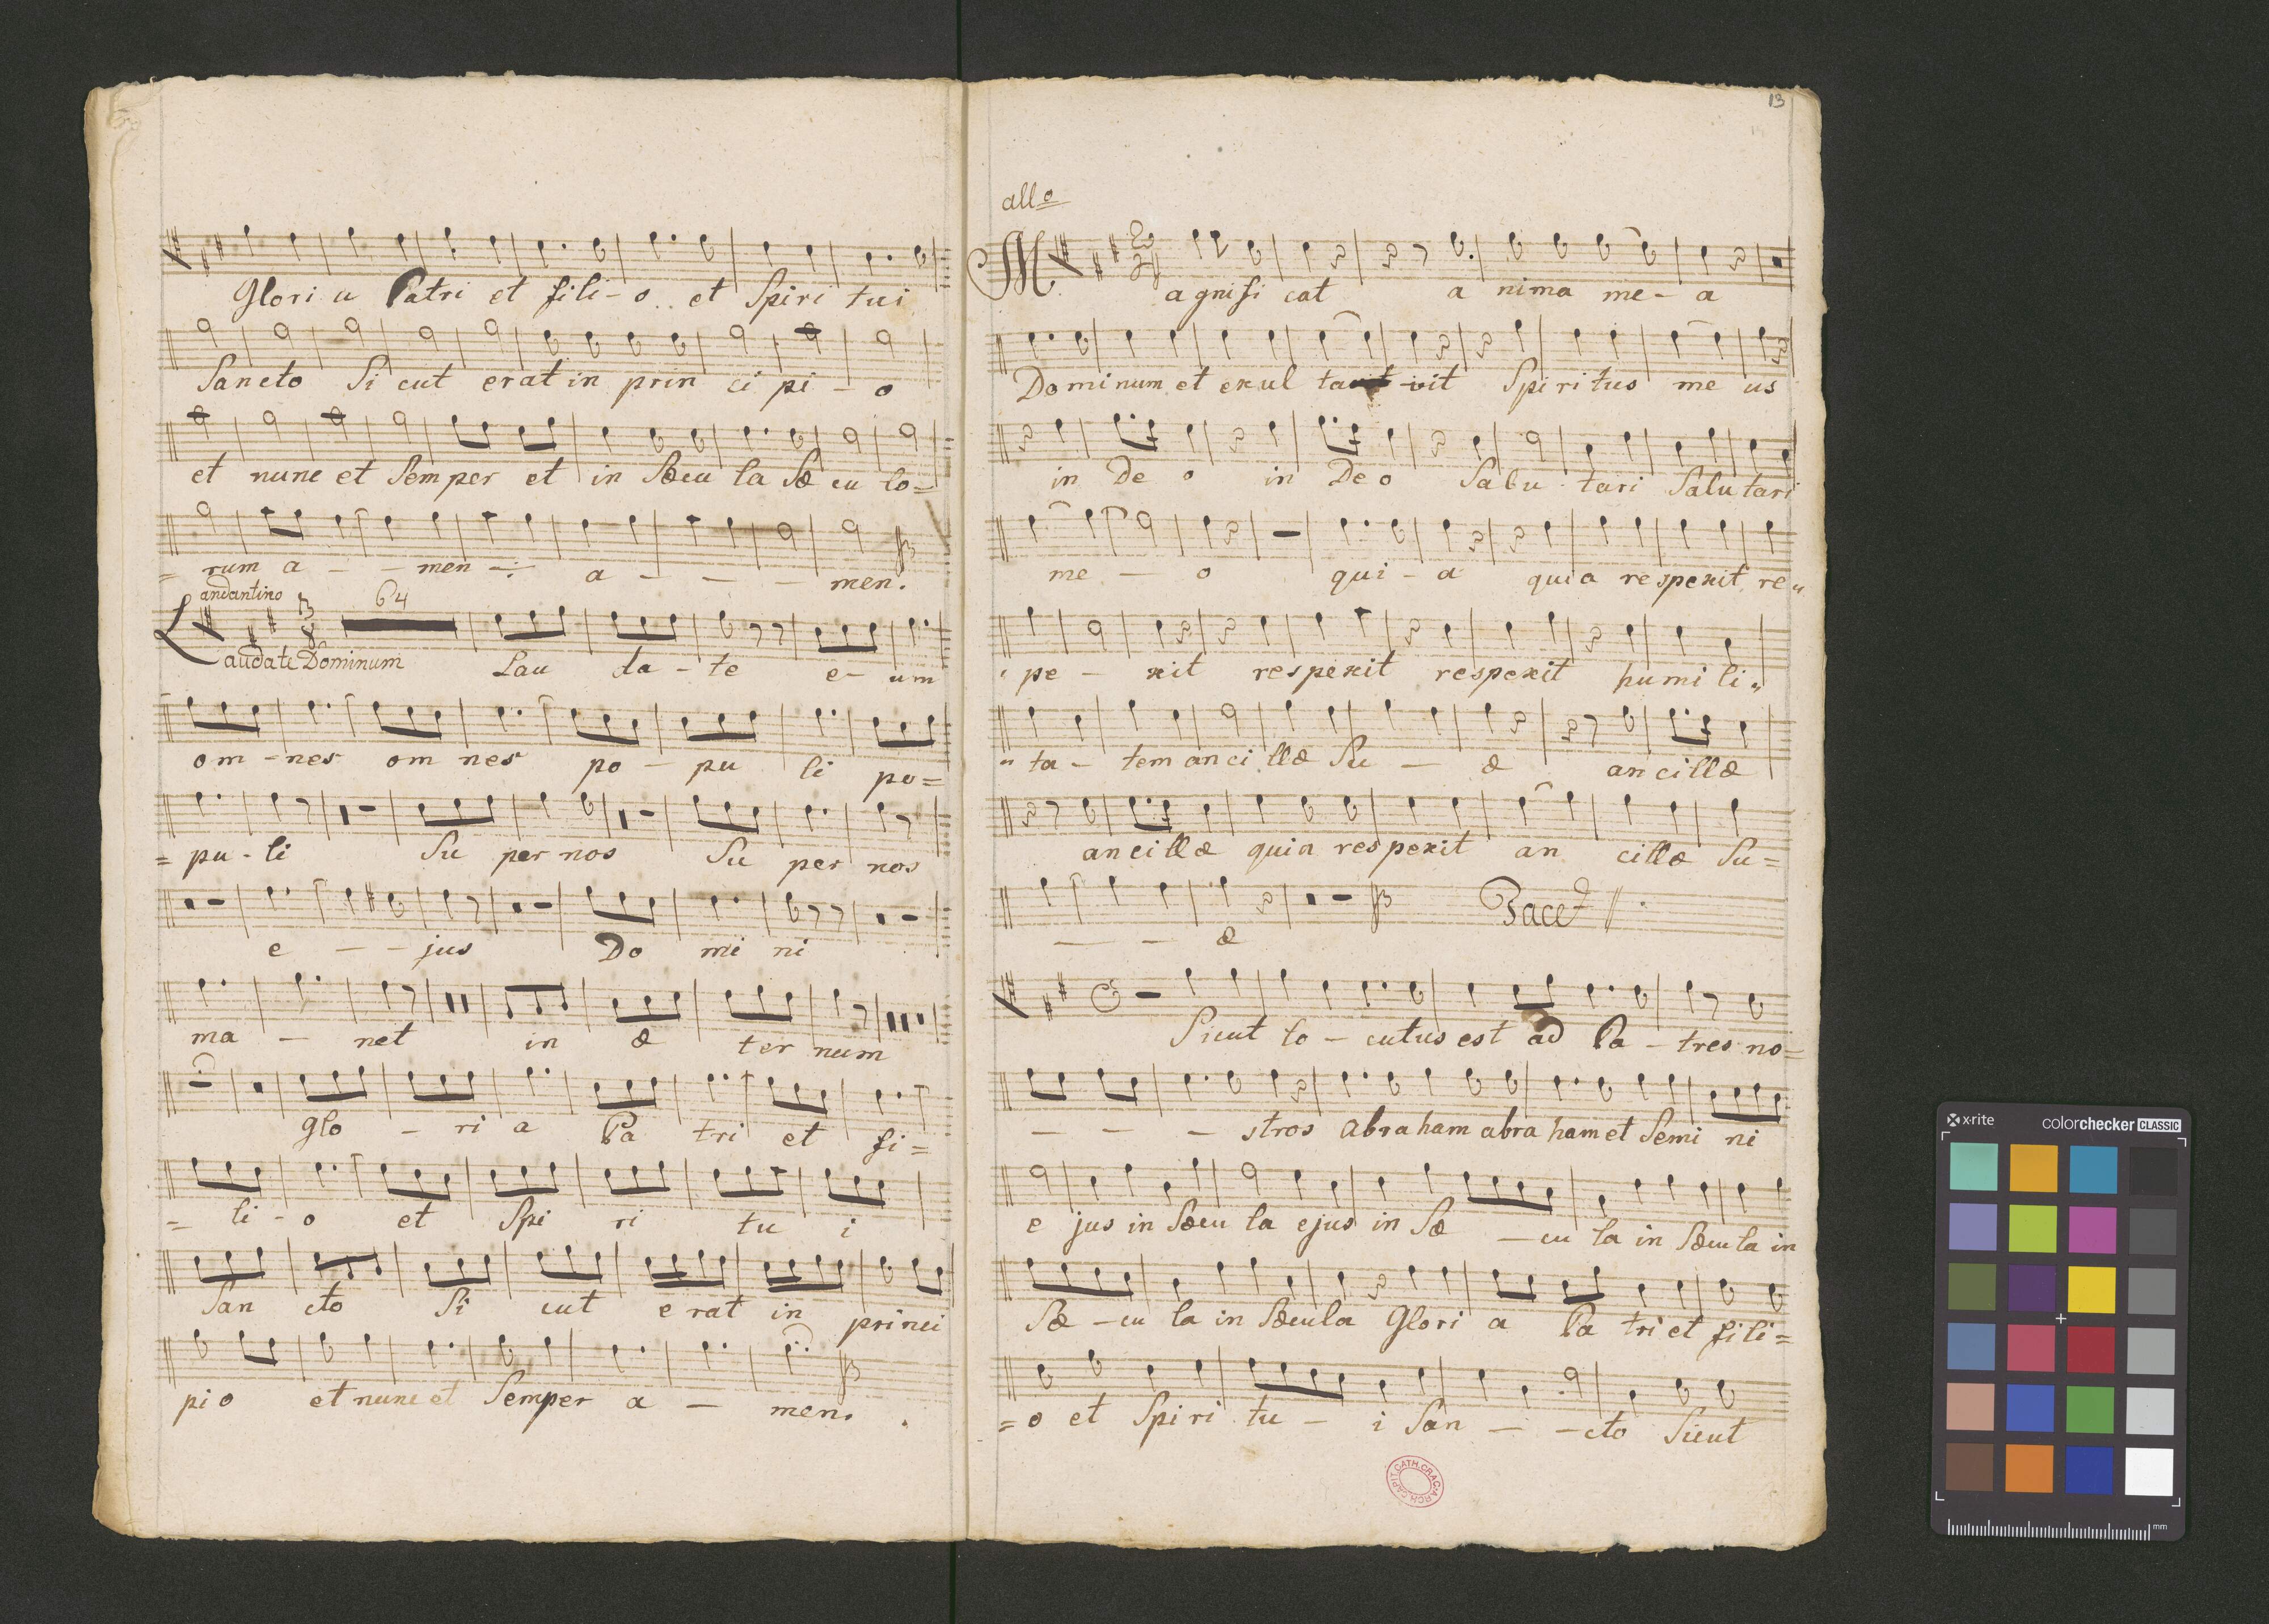 Gloria Patri et fili-o et Spiri tui
Sancto Si cut erat in prin ci pi - o
et nunc et Semper et in Sæcu la Sæ cu lo=
= rum a - - men -:- a - - - men.
andantino 64
3
8
Laudate Dominum Lau da - te e - um
om - nes om nes po - pu li po=
= pu - li Su per nos Su per nos
e - - jus Do mi ni
ma - net in æ ter num
glo - ri a Pa tri et fi=
= li - o et Spi ri tu i
San cto Si cut e rat in princi
pi o et nunc et Semper a - men.
13
allo
3
4
Magnifi cat a nima me - a
Dominum et exul ta vit Spiritus me us
in De o in Deo Salu tari Salutari
me - o qui - a quia respexit re„
„ pe - xit respexit respexit humi li„
„ ta - tem anci llæ Su - æ ancillæ
ancillæ quia respexit an cillæ Su=
- - æ Tacet //.
Sicut lo - cutus est ad Pa - tres no=
- - - stros Abraham abra ham et Semi ni
e jus in Sæcu la ejus in Sæ - cu la in Sæcula in
Sæ - cu la in Sæcula Glori a Pa tri et fili=
= o et Spi ri tu - i San - - cto Sicut
ARCH.CAPIT.CATH.CRAC.
x·rite colorchecker CLASSIC
mm